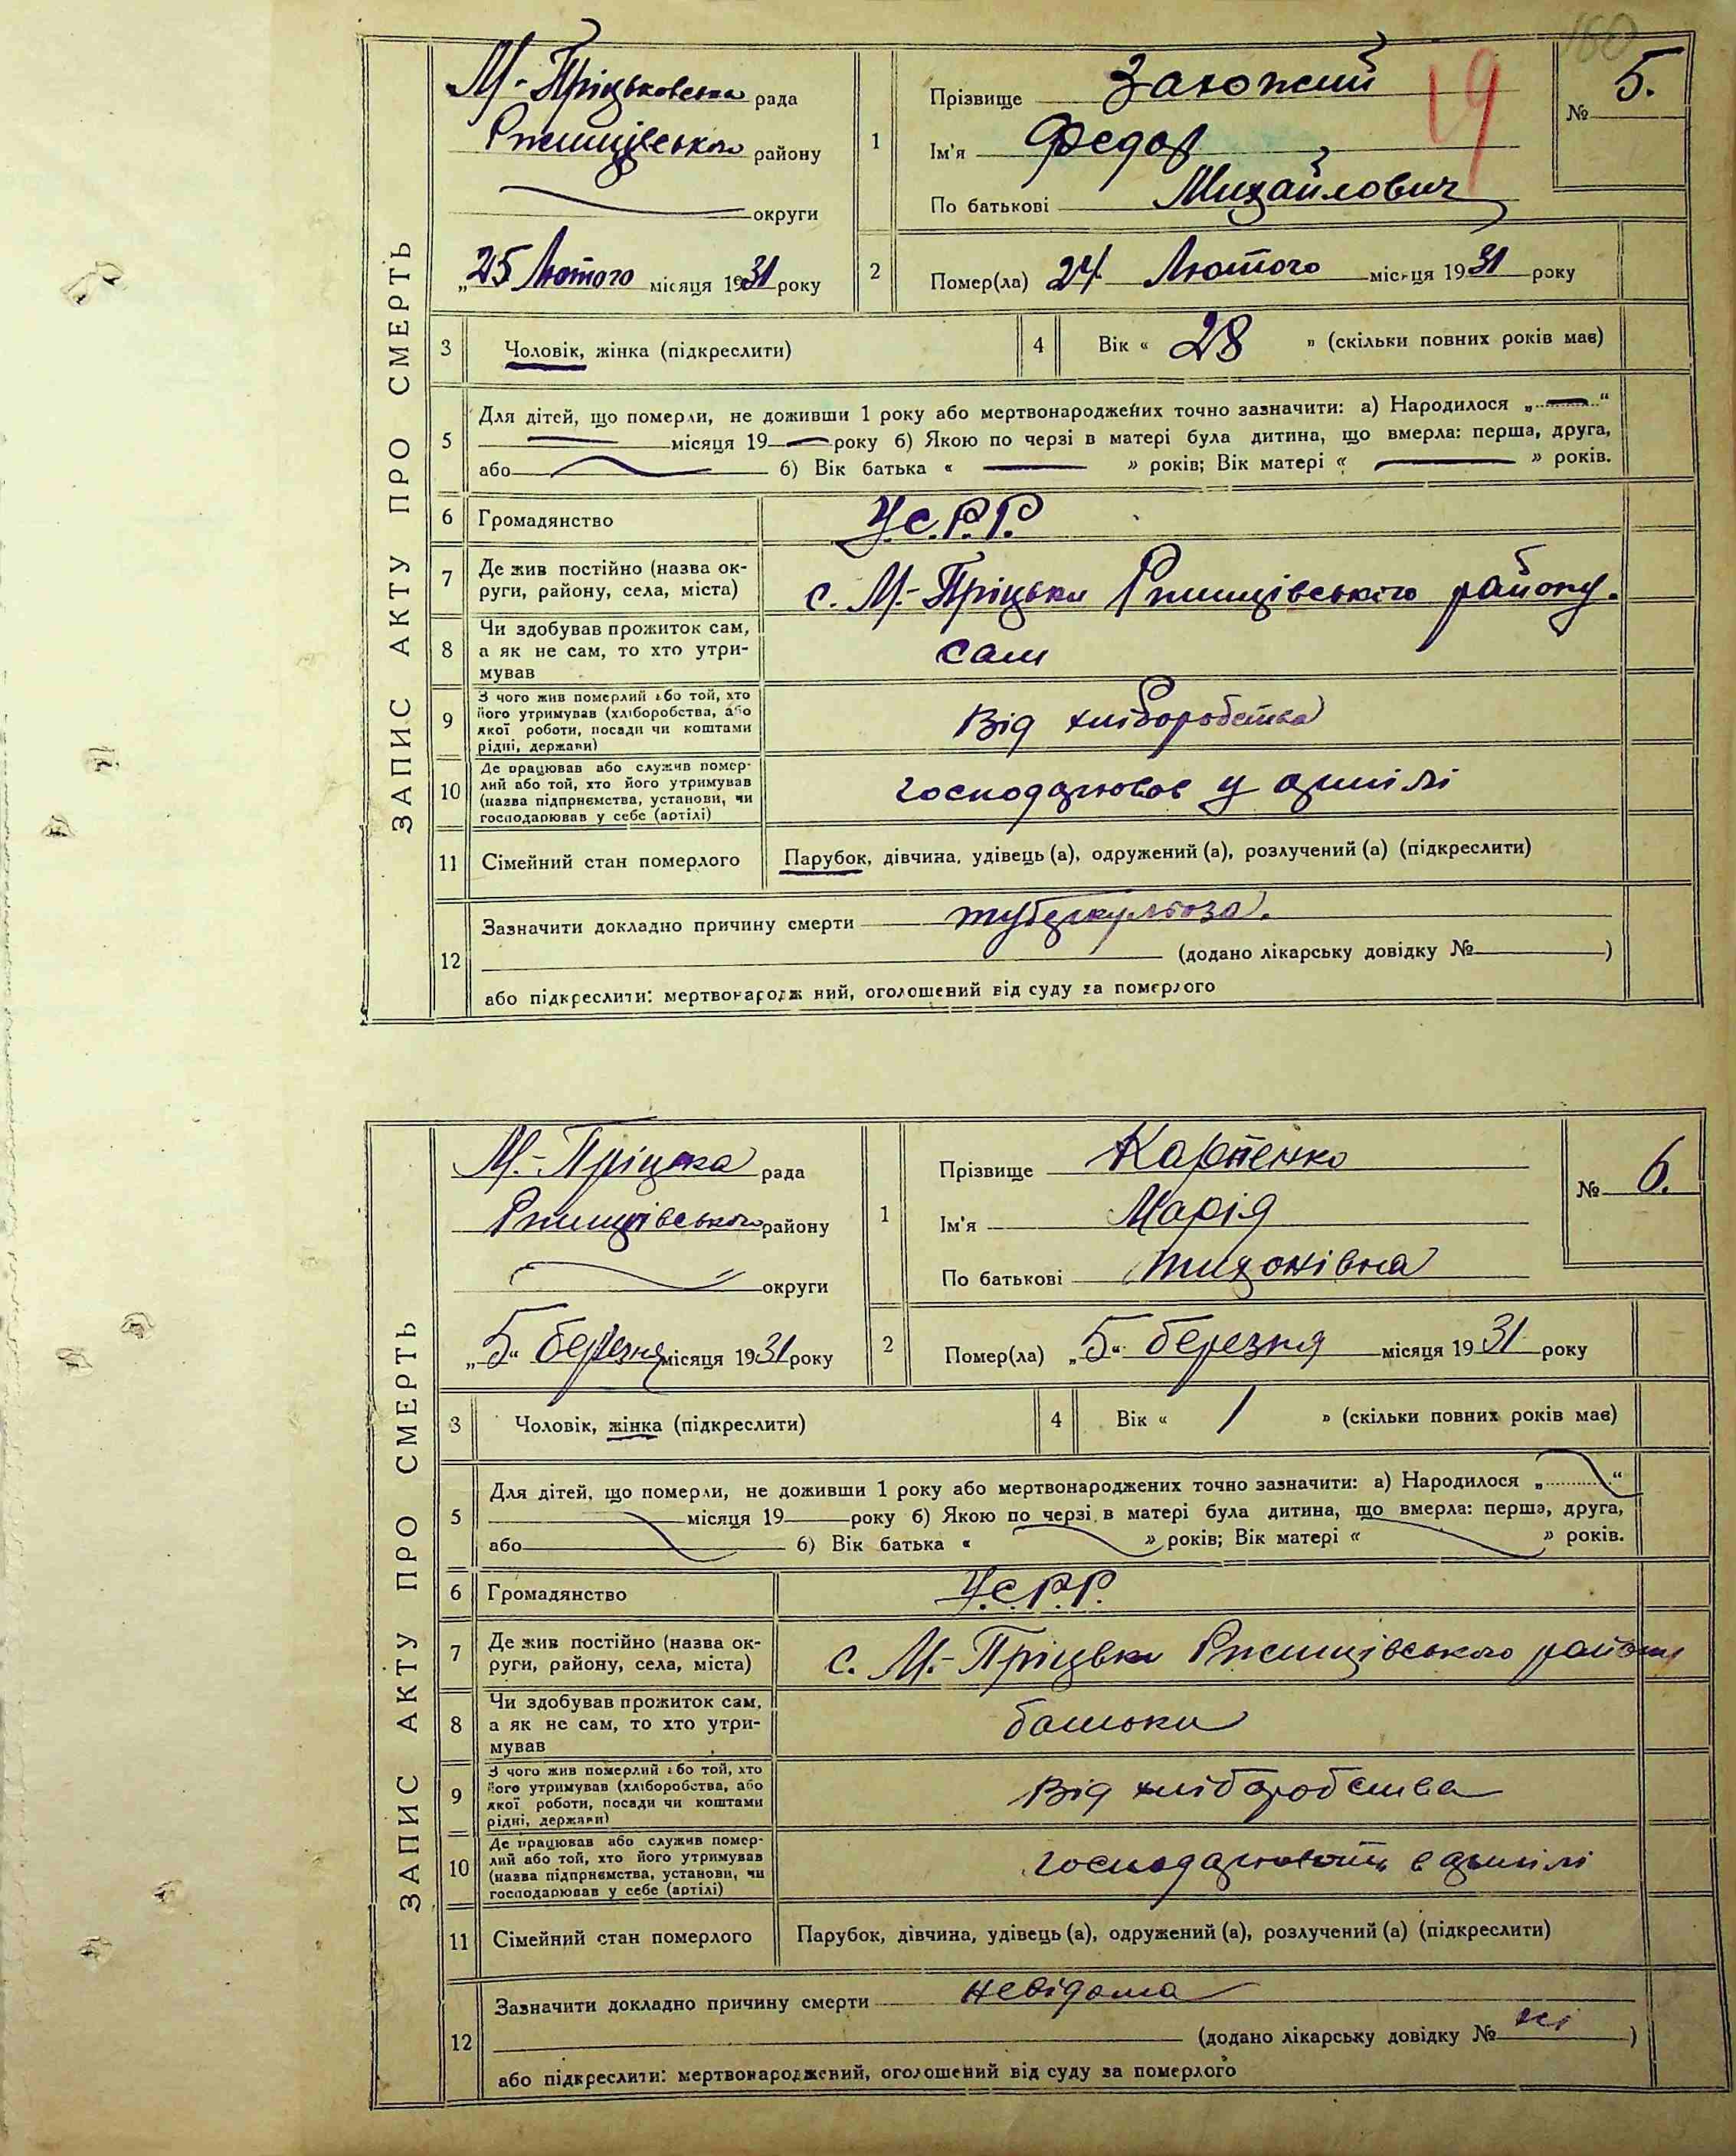 160
ЗАПИС АКТУ ПРО СМЕРТЬ
М.-Пріцьковська рада
Ржищівського району
округи
„25 Лютого місяця 1931 року
1
Прізвище
Ім'я Федор
По батькові Михайлович
№ 5.
19
2
Помер(ла) 24 Лютого місяця 1931 року
3 Чоловік, жінка (підкреслити)
4 Вік « 28 » (скільки повних років має)
5
Для дітей, що померли, не доживши 1 року або мертвонароджених точно зазначити: а) Народилося „ — “
— місяця 19 — року б) Якою по черзі в матері була дитина, що вмерла: перша, друга,
або — б) Вік батька « — » років; Вік матері « — » років.
6 Громадянство У.С.Р.Р.
7 Де жив постійно (назва ок-
руги, району, села, міста)
с. М.-Пріцьки Ржищівського району.
8 Чи здобував прожиток сам,
а як не сам, то хто утри-
мував
сам
9 З чого жив померлий або той, хто
його утримував (хліборобства, або
якої роботи, посади чи коштами
рідні, держави)
Від хліборобства
10 Де працював або служив помер-
лий або той, хто його утримував
(назва підприємства, установи, чи
господарював у себе (артілі)
господарював у артілі
11 Сімейний стан померлого Парубок, дівчина, удівець (а), одружений (а), розлучений (а) (підкреслити)
12
Зазначити докладно причину смерти туберкульоза.
(додано лікарську довідку № )
або підкреслити: мертвонародж ний, оголошений від суду за померлого
ЗАПИС АКТУ ПРО СМЕРТЬ
М.-Пріцька рада
Ржищівського району
округи
„5“ березня місяця 1931 року
1
Прізвище Карпенко
Ім'я Марія
По батькові Тихонівна
№ 6.
2
Помер(ла) „5“ березня місяця 1931 року
3 Чоловік, жінка (підкреслити)
4 Вік « 1 » (скільки повних років має)
5
Для дітей, що померли, не доживши 1 року або мертвонароджених точно зазначити: а) Народилося „ “
місяця 19 року б) Якою по черзі в матері була дитина, що вмерла: перша, друга,
або б) Вік батька « » років; Вік матері « » років.
6 Громадянство У.С.Р.Р.
7 Де жив постійно (назва ок-
руги, району, села, міста)
с. М.-Пріцьки Ржищівського району
8 Чи здобував прожиток сам,
а як не сам, то хто утри-
мував
батьки
9 З чого жив померлий або той, хто
його утримував (хліборобства, або
якої роботи, посади чи коштами
рідні, держави)
Від хліборобства
10 Де працював або служив помер-
лий або той, хто його утримував
(назва підприємства, установи, чи
господарював у себе (артілі)
господарюють в артілі
11 Сімейний стан померлого Парубок, дівчина, удівець (а), одружений (а), розлучений (а) (підкреслити)
12
Зазначити докладно причину смерти невідома
(додано лікарську довідку № ні )
або підкреслити: мертвонароджений, оголошений від суду за померлого